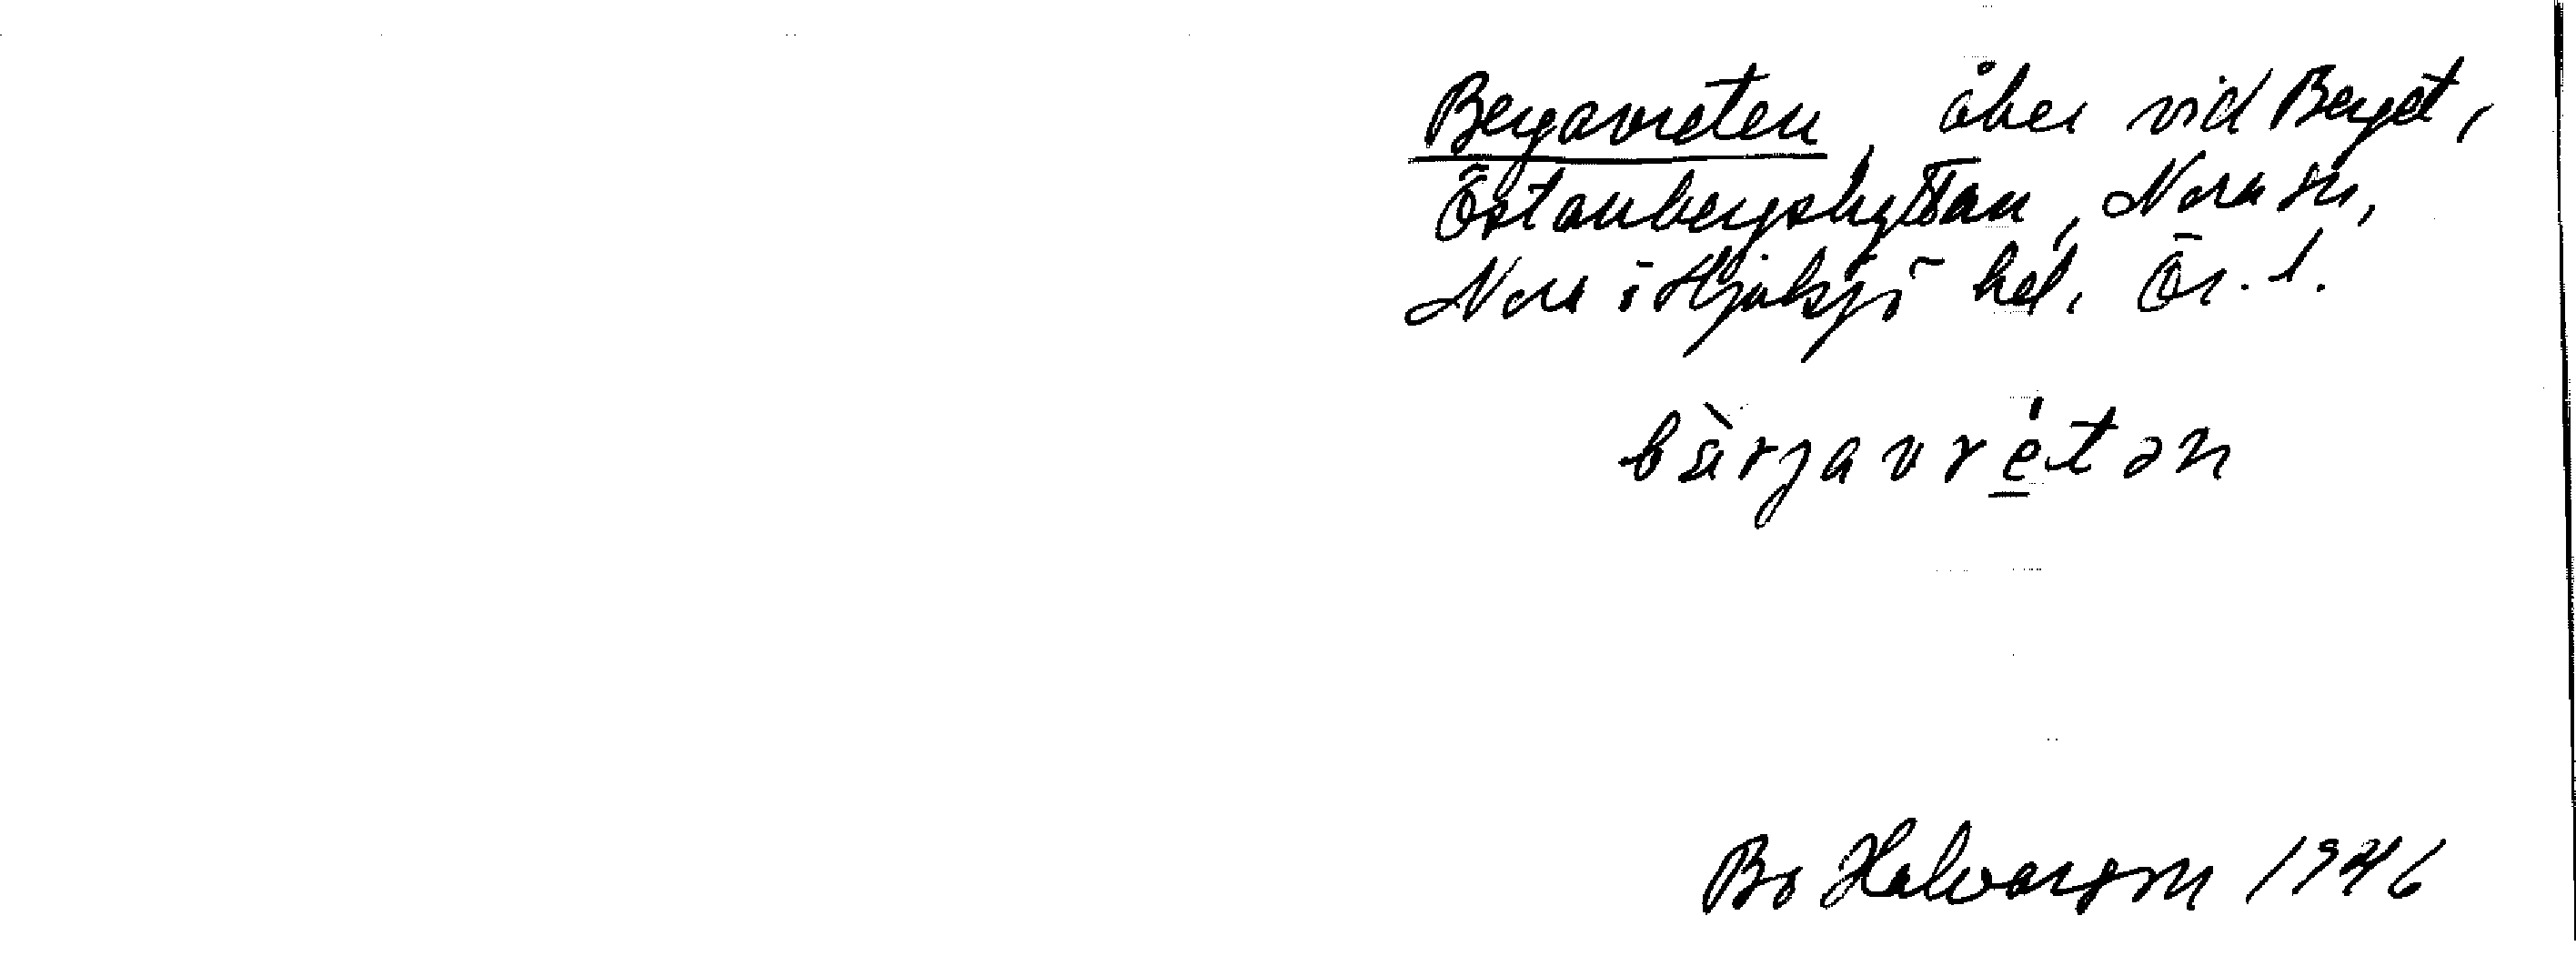 Bergavreten, åker vid Berget,
Östanbergshyttan, Nora sn,
Nora o Hjulsjö hd, Ör. l.
bä̀rjavré̱tən
Bo Halvarson 1946